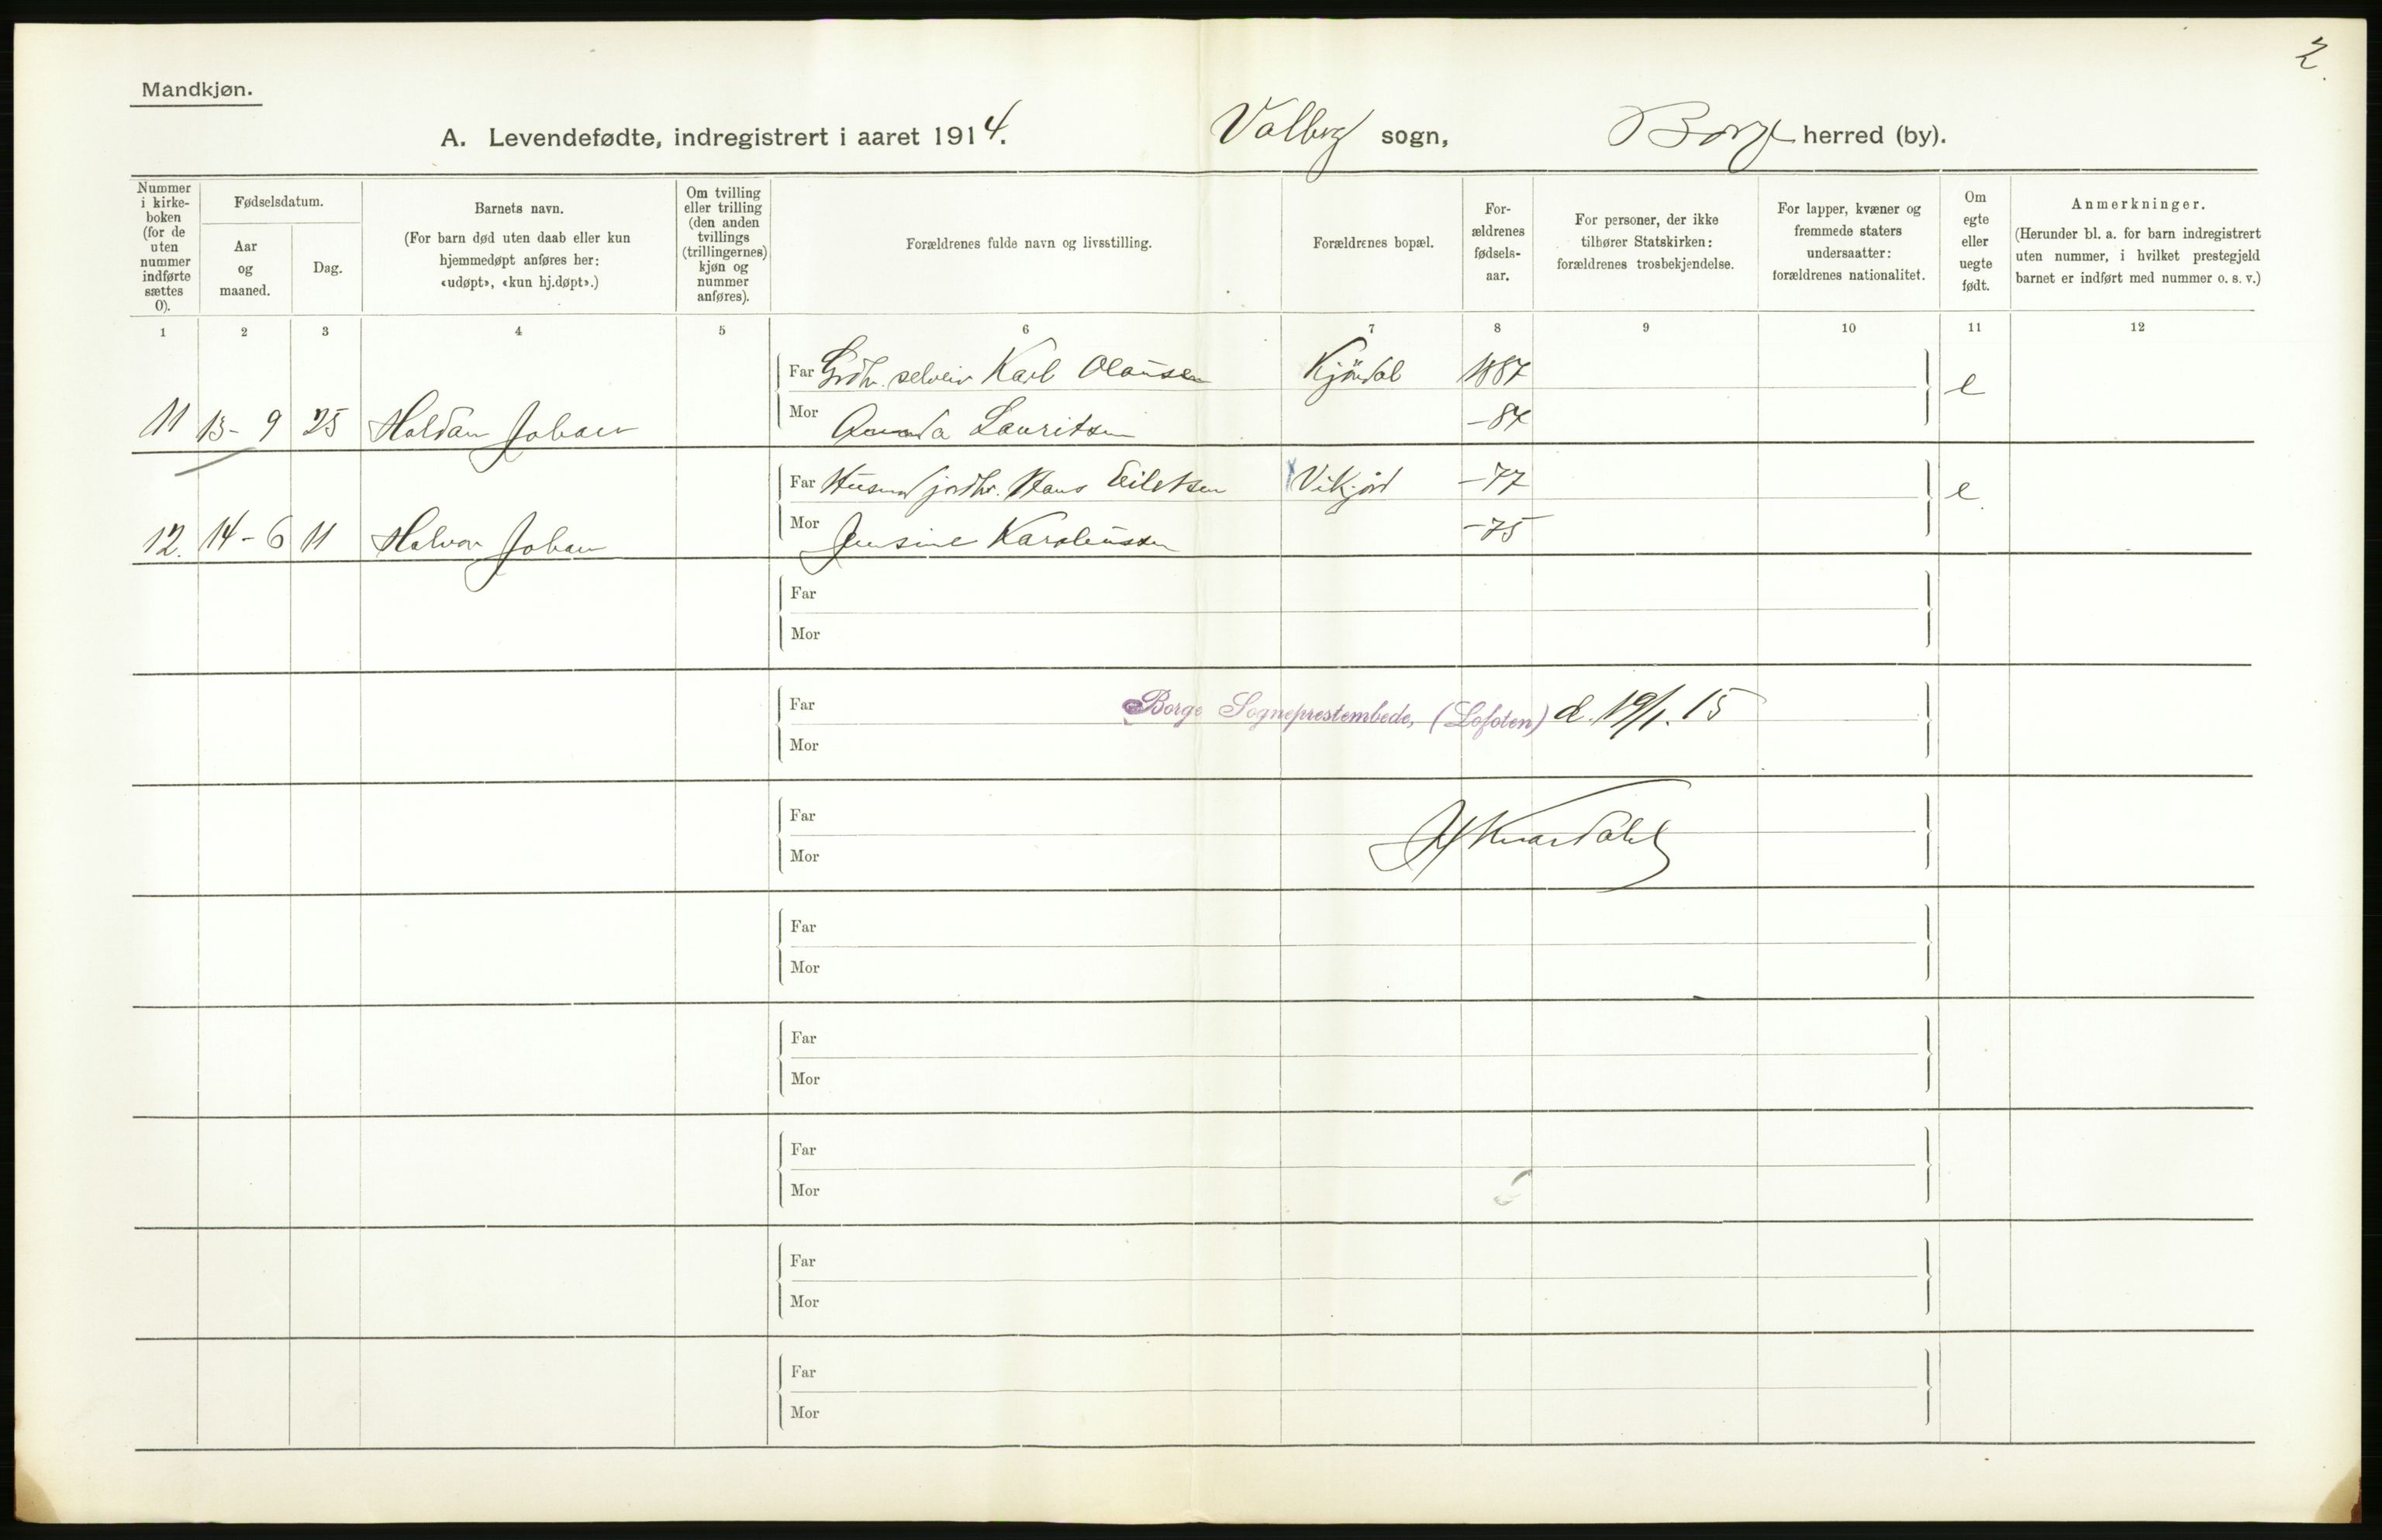 2.
Mandkjøn.
A. Levendefødte, indregistrert i aaret 1914. Valberg sogn, Borge herred (by).
Nummer i kirke-boken (for de uten nummer indførte sættes 0).
Fødselsdatum.
Aar og maaned.
Dag.
Barnets navn.
(For barn død uten daab eller kun hjemmedøpt anføres her: «udøpt», «kun hj.døpt».)
Om tvilling eller trilling (den anden tvillings (trillingernes) kjøn og nummer anføres).
Forældrenes fulde navn og livsstilling.
Forældrenes bopæl.
For-ældrenes fødsels-aar.
For personer, der ikke tilhører Statskirken: forældrenes trosbekjendelse.
For lapper, kvæner og fremmede staters undersaatter: forældrenes nationalitet.
Om egte eller uegte født.
Anmerkninger.
(Herunder bl. a. for barn indregistrert uten nummer, i hvilket prestegjeld barnet er indført med nummer o. s. v.)
1 2 3 4 5 6 7 8 9 10 11 12
Far Grdbr. selveier Karl Olausen Kjøndal 1887 e
11 13-9 25 Haldan Johan Mor Amanda Lauritsen -87
Far Husmd jordbr. Hans Eilertsen Vikjord -77 e
12. 14-6 11 Halvor Johan Mor Jensine Karoliussen -75
Far
Mor
Far Borge Sogneprestembede, (Lofoten) d. 19/1. 15
Mor
Far
Mor
Far
Mor
Far
Mor
Far
Mor
Far
Mor
Far
Mor